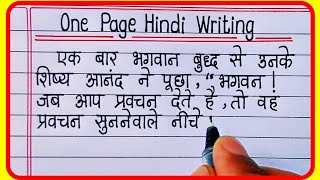 One Page Hindi Writing
एक बार भगवान बुद्ध से उनके
शिष्य आनंद ने पूछा, "भगवन !
जब आप प्रवचन देते है, तो वह
प्रवचन सुननेवाले नीचे